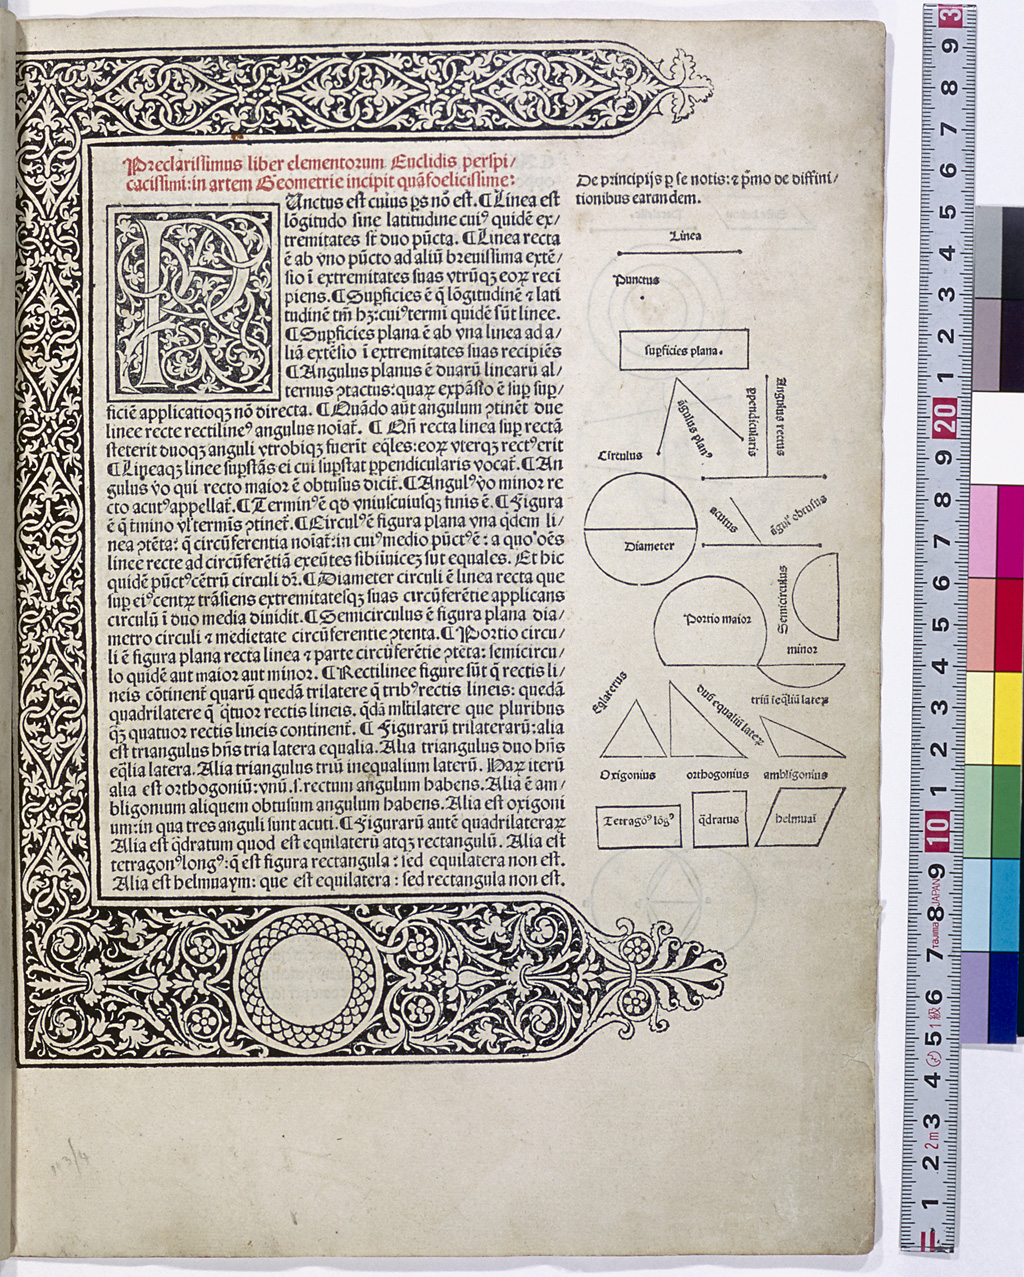 Preclarissimus liber elementorum Euclidis perspi/
cacissimi: in artem Geometrie incipit quãfoelicissime:
Unctus est cuius ps nõ est. ¶ Linea est
lõgitudo sine latitudine cuiꝰ quidẽ ex/
tremitates st̃ duo pũcta. ¶ Linea recta
ẽ ab vno pũcto ad aliũ breuissima extẽ/
sio ĩ extremitates suas vtrũqꝫ eoꝝ reci
piens. ¶ Supficies ẽ q̃ lõgitudinẽ ⁊ lati
tudinẽ tm̃ hꝫ: cuiꝰ termi quidẽ sũt linee.
¶ Supficies plana ẽ ab vna linea ad a/
liã extẽsio ĩ extremitates suas recipiẽs
¶ Angulus planus ẽ duarũ linearũ al/
ternus ꝯtactus: quaꝝ expãsio ẽ sup sup/
ficiẽ applicatioqꝫ nõ directa. ¶ Quãdo aũt angulum ꝯtinẽt due
linee recte rectilineꝰ angulus noiat̃. ¶ Qñ recta linea sup rectã
steterit duoqꝫ anguli vtrobiqꝫ fuerit eq̃les: eoꝝ vterqꝫ rectꝰ erit
¶ Lineaqꝫ linee supstãs ei cui supstat ppendicularis vocat̃. ¶ An
gulus ṽo qui recto maior ẽ obtusus dicit̃. ¶ Angulꝰ ṽo minor re
cto acutꝰ appellat̃. ¶ Terminꝰ ẽ qd̃ vniuscuiusqꝫ finis ẽ. ¶ Figura
ẽ q̃ tmino vl̃ termis ꝯtinet̃. ¶ Circulꝰ ẽ figura plana vna q̃dem li/
nea ꝯtẽta: q̃ circũferentia noiat̃: in cuiꝰ medio pũctꝰ ẽ: a quo oẽs
linee recte ad circũferẽtiã exeũtes sibiinuiceꝫ sũt equales. Et hic
quidẽ pũctꝰ cẽtrũ circuli dr̃. ¶ Diameter circuli ẽ linea recta que
sup eiꝰ centꝝ trãsiens extremitatesqꝫ suas circũferẽtie applicans
circulũ ĩ duo media diuidit. ¶ Semicirculus ẽ figura plana dia/
metro circuli ⁊ medietate circũferentie ꝯtenta. ¶ Portio circu/
li ẽ figura plana recta linea ⁊ parte circũferẽtie ꝯtẽta: semicircu/
lo quidẽ aut maior aut minor. ¶ Rectilinee figure sũt q̃ rectis li/
neis cõtinent̃ quarũ quedã trilatere q̃ tribꝰ rectis lineis: quedã
quadrilatere q̃ q̃tuor rectis lineis. q̃dã mltilatere que pluribus
qꝫ quatuor rectis lineis continent̃. ¶ Figurarũ trilaterarũ: alia
est triangulus hñs tria latera equalia. Alia triangulus duo hñs
eq̃lia latera. Alia triangulus triũ inequalium laterũ. Haꝝ iterũ
alia est orthogoniũ: vnũ .s. rectum angulum habens. Alia ẽ am/
bligonium aliquem obtusum angulum habens. Alia est oxigoni
um: in qua tres anguli sunt acuti. ¶ Figurarũ autẽ quadrilateraꝝ
Alia est q̃dratum quod est equilaterũ atqꝫ rectangulũ. Alia est
tetragonꝰ longꝰ: q̃ est figura rectangula: sed equilatera non est.
Alia est helmuaym: que est equilatera: sed rectangula non est.
De principijs p se notis: ⁊ p̃mo de diffini/
tionibus earandem.
Linea
Punctus
supficies plana.
ãgulus planꝰ
ppendicularis
Angulus rectus
Circulus
acutus
ãgulꝰ obtusus
Diameter
Portio maior
Semicirculus
minor
Eqlaterus
duũ equaliũ lateꝝ
triũ ieq̃liũ lateꝝ
Oxigonius
orthogonius
ambligonius
Tetragõꝰ lõgꝰ
q̃dratus
helmuai
3
9
8
7
6
5
4
3
2
1
20
9
8
7
6
5
4
3
2
1
10
9
8
7
6
5
4
3
2
1
Tajima JAPAN
1級
2m